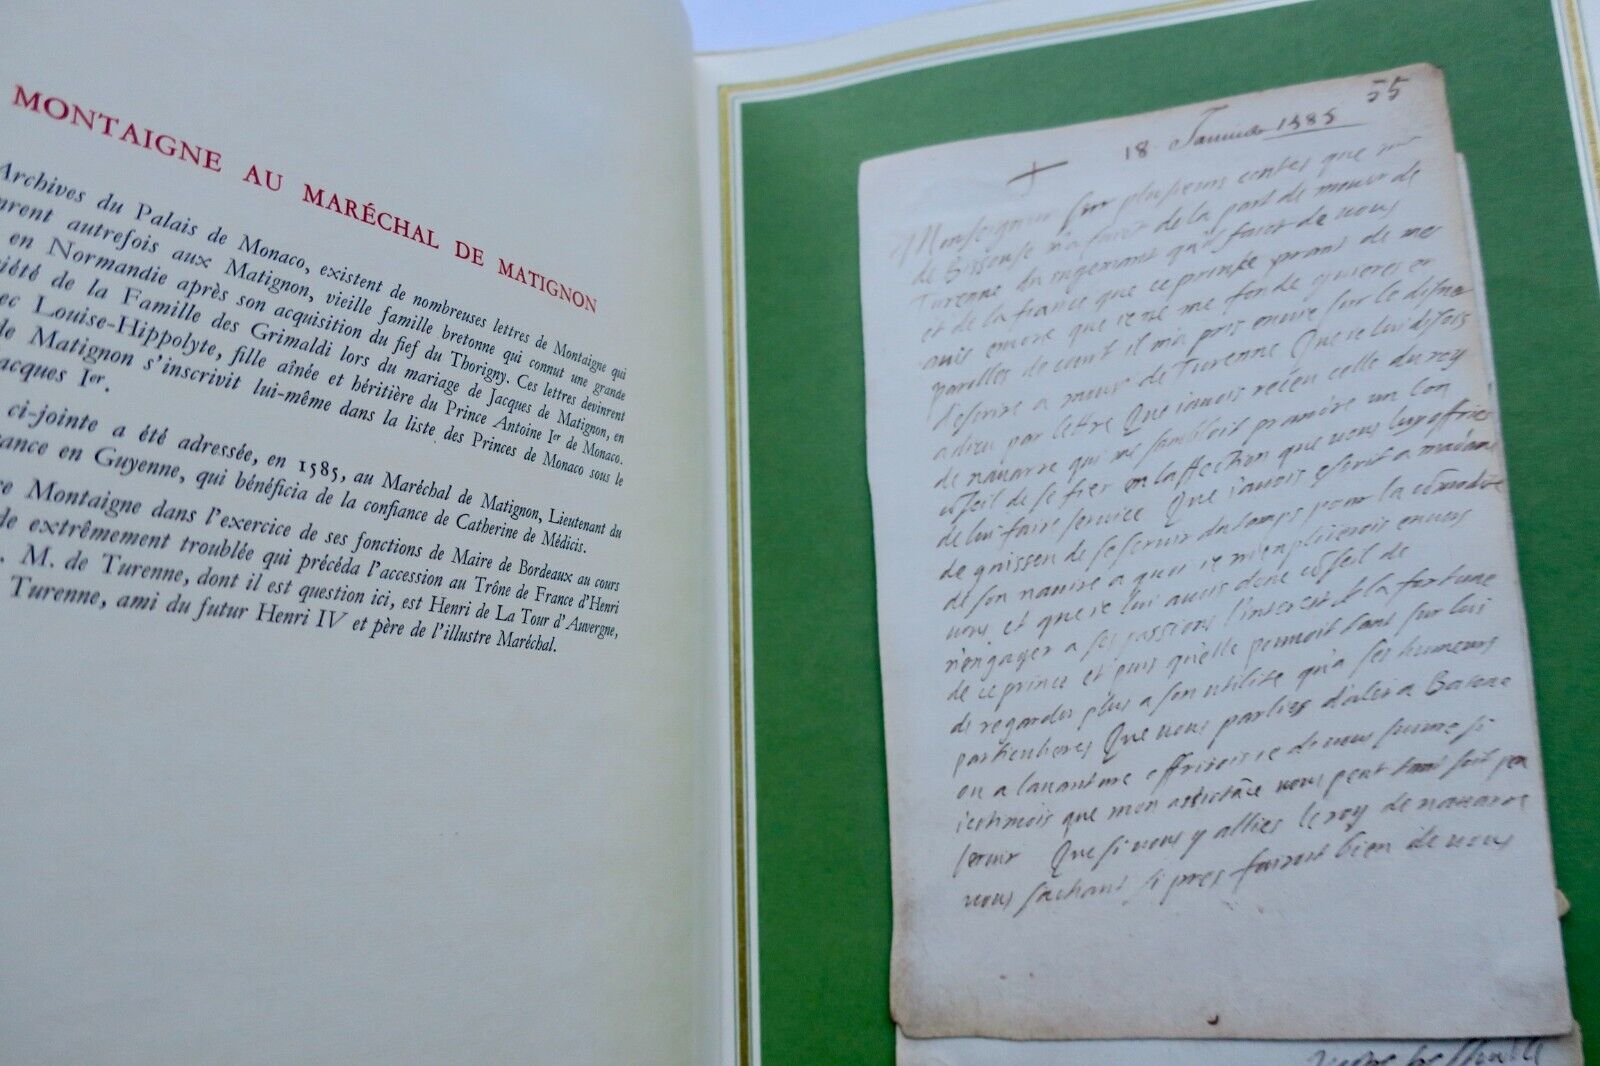 MONTAIGNE AU MARÉCHAL DE MATIGNON
Archives du Palais de Monaco, existent de nombreuses lettres de Montaigne qui
autrefois aux Matignon, vieille famille bretonne qui connut une grande
en Normandie après son acquisition du fief du Thorigny. Ces lettres devinrent
iété de la Famille des Grimaldi lors du mariage de Jacques de Matignon, en
ec Louise-Hippolyte, fille aînée et héritière du Prince Antoine Ier de Monaco.
de Matignon s'inscrivit lui-même dans la liste des Princes de Monaco sous le
acques Ier.
ci-jointe a été adressée, en 1585, au Maréchal de Matignon, Lieutenant du
ance en Guyenne, qui bénéficia de la confiance de Catherine de Médicis.
re Montaigne dans l'exercice de ses fonctions de Maire de Bordeaux au cours
de extrêmement troublée qui précéda l'accession au Trône de France d'Henri
. M. de Turenne, dont il est question ici, est Henri de La Tour d'Auvergne,
Turenne, ami du futur Henri IV et père de l'illustre Maréchal.
55
18 1585
Monseigneur sur plusieurs contes que
de m'a faict de la part de
Turenne du jugemant qu'il faict de vous
et de la france que ce prince prant de mes
avis encore que je ne me fonde guieres en
parolles de court il m'a pris envie sur le disner
d'escrire a de Turenne Que je lui disois
adieu par lettre Que javois receu celle du roy
de navarre qui me sambloit prandre un bon
de se fier en laffection que vous luy offries
de lui faire service Que javois escrit a
de guissen de se servir du tamps pour la
de son navire a quoi je m'emplierois envers
vous et que je lui avois donc de
n'engager a ses passions l'interest et la fortune
de ce prince et puis qu'elle pouvoit tant sur lui
de regarder plus a son utilite qu'a ses humeurs
particulieres Que vous parlies d'aler a
ou a lavanture offrirois je de vous suivre si
j'estimois que mon vous peut tant soit peu
servir Que si vous y allies le roy de navarre
vous sachant si pres fairoit bien de vous